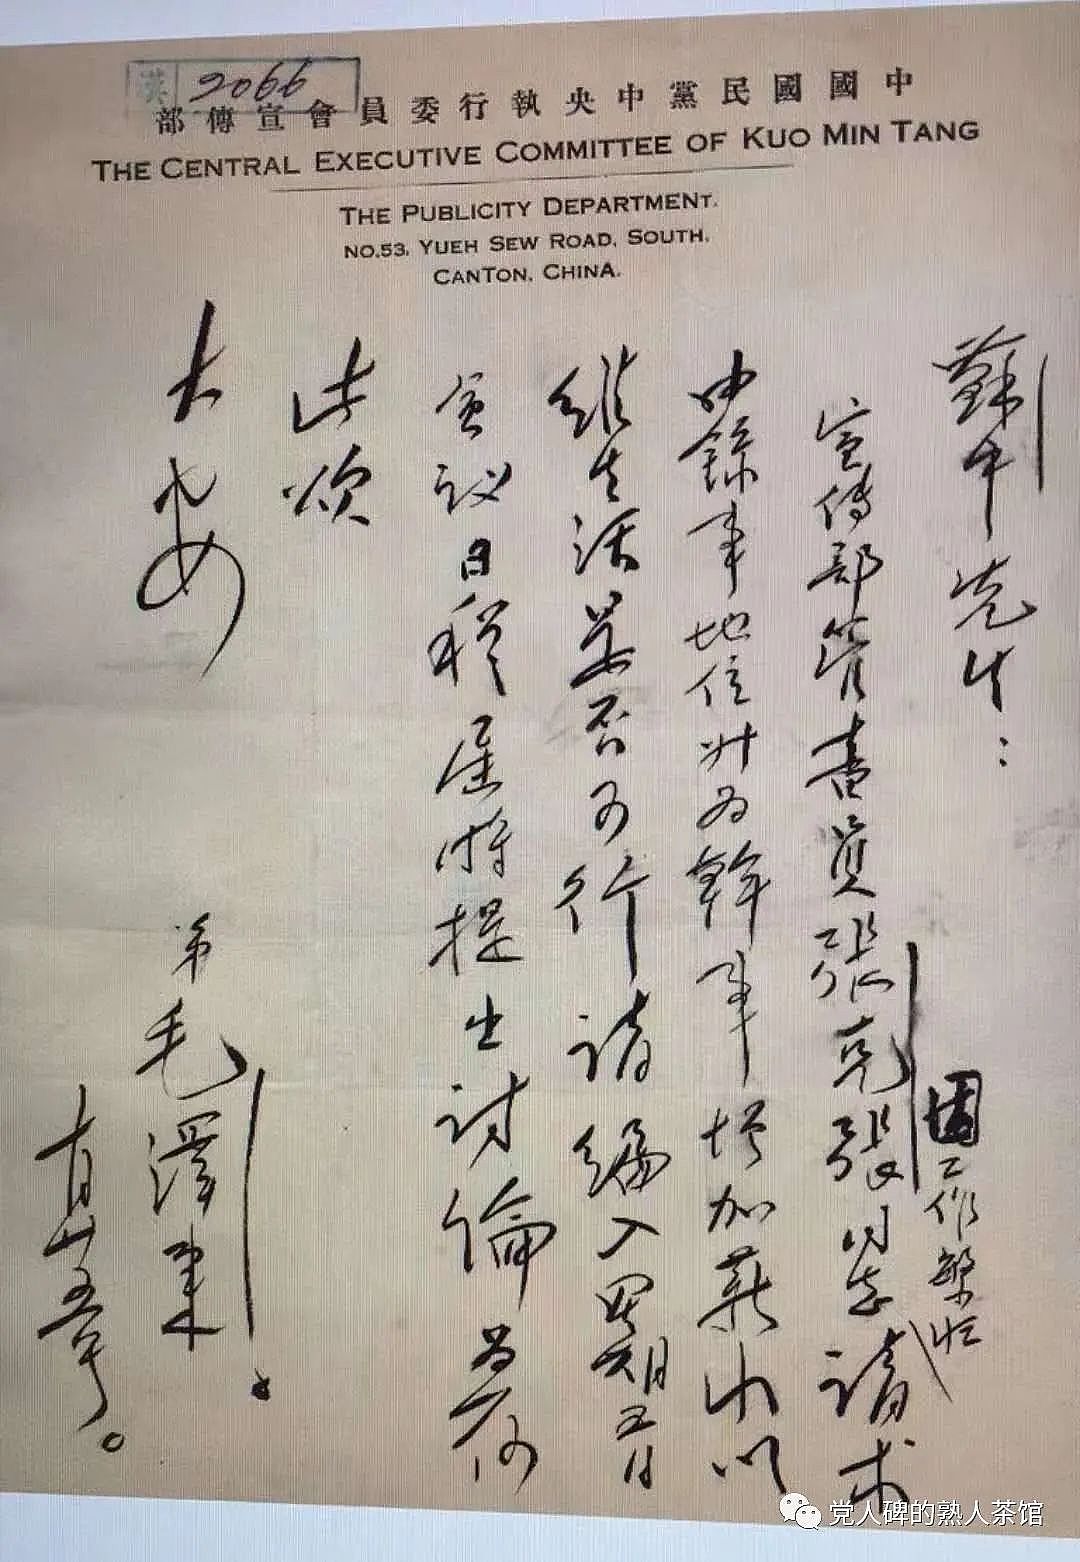 2066
中國國民黨中央執行委員會宣傳部
THE CENTRAL EXECUTIVE COMMITTEE OF KUO MIN TANG
THE PUBLICITY DEPARTMENT.
NO.53, YUEH SEW ROAD, SOUTH,
CANTON, CHINA.
先生：
宣传部管書員張克張同志請求
因工作繁忙
由錄事地位升为幹事增加薪水以
維生活是否可行請编入星期五日
会议日程屆時提出讨論为荷
此颂
大安
弟毛澤東。
廿五号。
党人碑的熟人茶馆